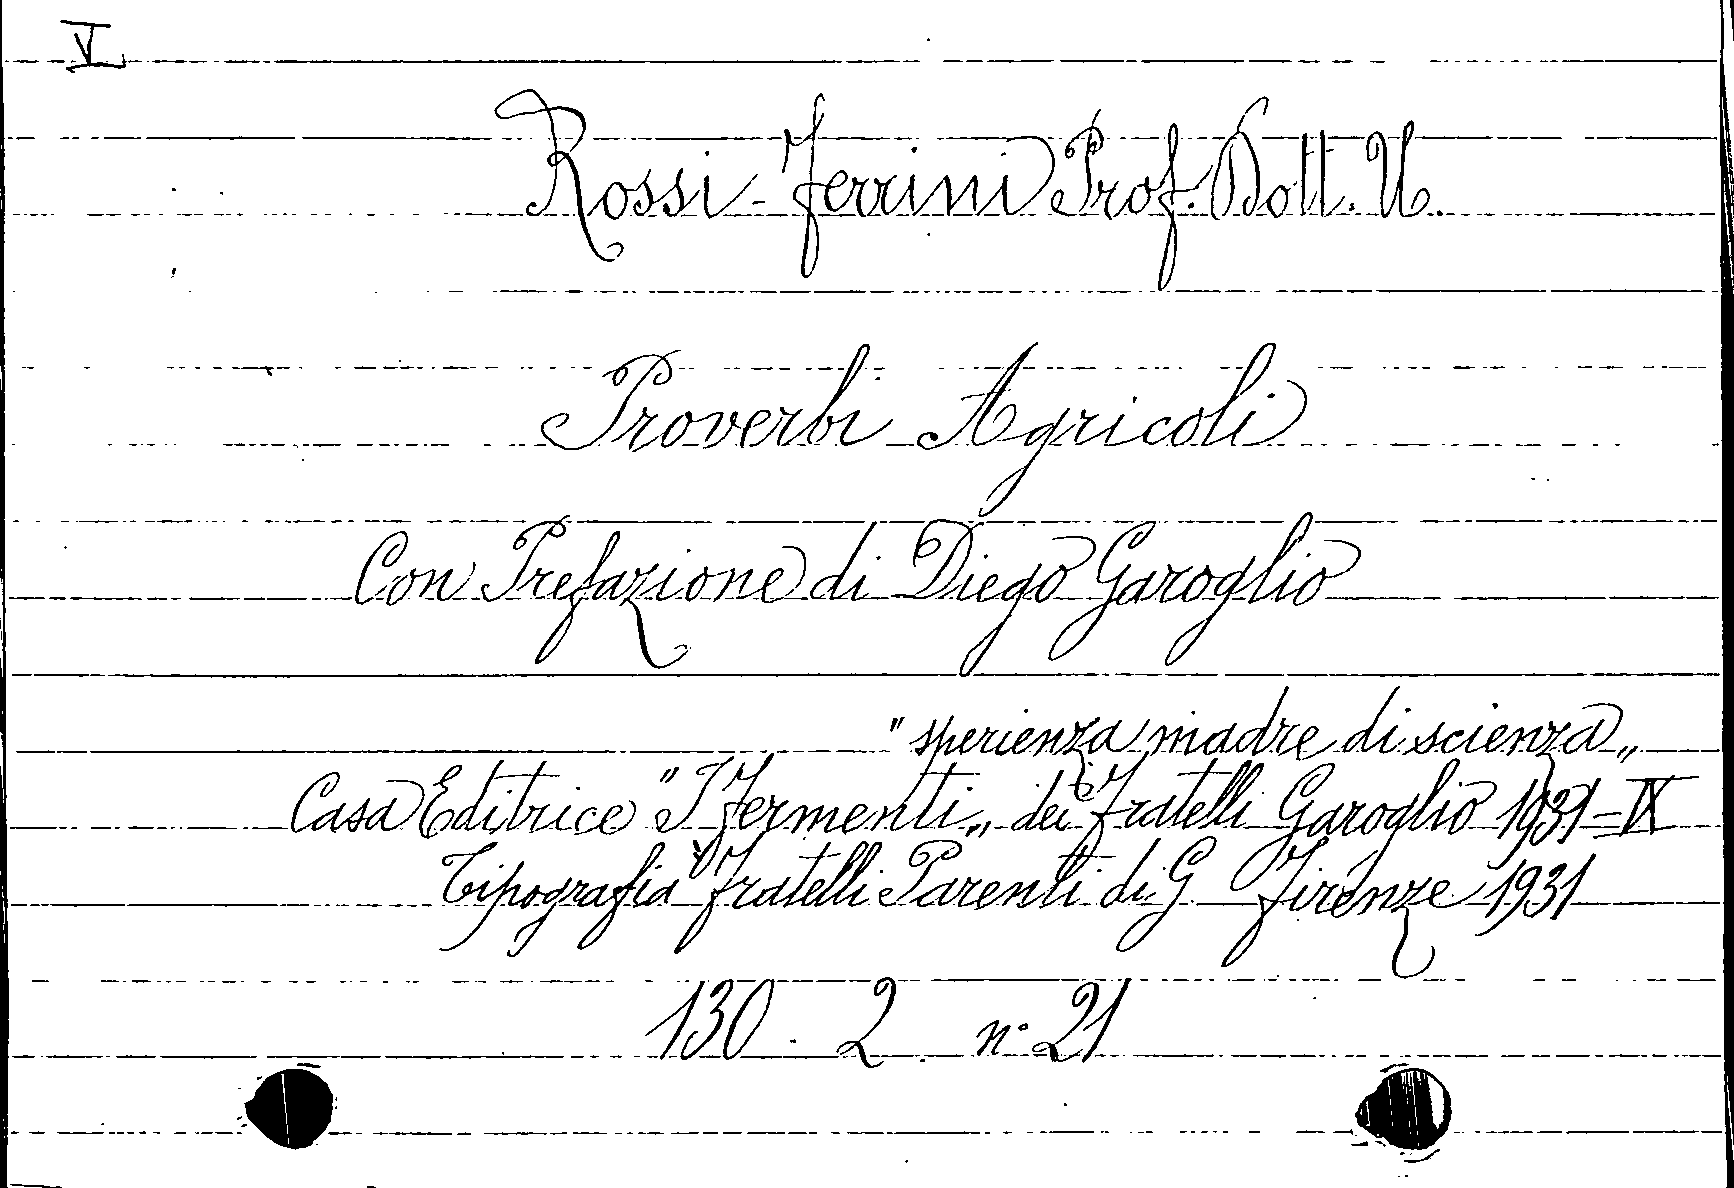 V
Rossi-Ferrini Prof. Dott. U.
Proverbi Agricoli
Con Prefazione di Diego Garoglio
"sperienza madre di scienza„
Casa Editrice "I fermenti„ dei Fratelli Garoglio 1931-IX
Tipografia Fratelli Parenti di G. Firenze 1931
130. 2. n. 21